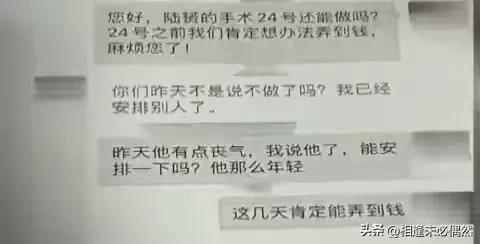 您好，陆赟的手术24号还能做吗？
24号之前我们肯定想办法弄到钱，
麻烦您了！
你们昨天不是说不做了吗？我已经
安排别人了。
昨天他有点丧气，我说他了，能安
排一下吗？他那么年轻
这几天肯定能弄到钱
头条 @相逢未必偶然